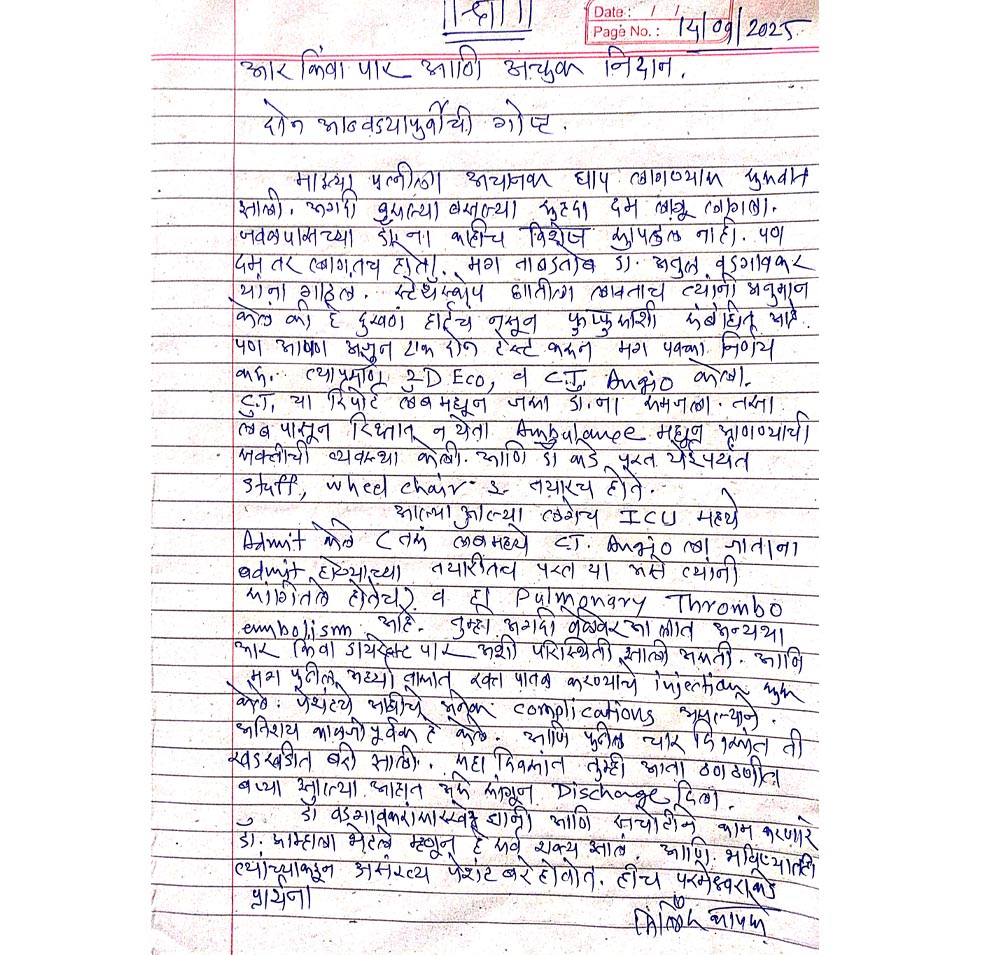 ||श्री||
Date: / / 14/09/2025
Page No.:
आर किंवा पार आणि अचुक निदान.
दोन आठवड्यापुर्वीची गोष्ट.
माझ्या पत्नीला अचानक धाप लागण्यास सुरुवात
झाली. अगदी बसल्या बसल्या सुद्धा दम लागू लागला.
जवळपासच्या डॉ.ना काहीच विशेष सापडले नाही. पण
दम तर लागतच होता. मग ताबडतोब डॉ. अतुल वडगावकर
यांना गाठले. स्टेथस्कोप छातीला लावताच त्यांनी अनुमान
केले की हे दुखणे हार्टचे नसून फुफ्फुसाशी संबंधित आहे.
पण आपण अजून एक दोन टेस्ट करून मग पक्का निर्णय
करू. त्याप्रमाणे 2D Eco, व C.T. Angio केला.
C.T. चा रिपोर्ट लॅब मधून जसा डॉ.ना समजला. तसा
लॅब पासून रिक्षात न येता Ambulance मधून आणण्याची
सक्तीची व्यवस्था केली. आणि डॉ कडे परत येईपर्यंत
staff, wheel chair इ. तयारच होते.
आल्या आल्या लगेच ICU मध्ये
Admit केले (तसं लॅबमध्ये C.T. Angio ला जाताना
admit होण्याच्या तयारीतच परत या असे त्यांनी
सांगितले होतेच) व हा Pulmonary Thrombo
embolism आहे. तुम्ही अगदी वेळेवर आलात अन्यथा
आर किंवा डायरेक्ट पार अशी परिस्थिती झाली असती. आणि
मग पुढील अर्ध्या तासात रक्त पातळ करण्याचे injection सुरू
केले. पेशंटचे आधीचे अनेक complications असल्याने.
अतिशय काळजीपूर्वक हे केले. आणि पुढील चार दिवसांत ती
खडखडीत बरी झाली. सहा दिवसांत तुम्ही आता ठणठणीत
बऱ्या झाल्या आहात असे सांगून Discharge दिला.
डॉ वडगावकरांसारखे ज्ञानी आणि सचोटीने काम करणारे
डॉ. आम्हाला भेटले म्हणून हे सर्व शक्य झाले. आणि भविष्यातही
त्यांच्याकडून असंख्य पेशंट बरे होवोत. हीच परमेश्वराकडे
प्रार्थना